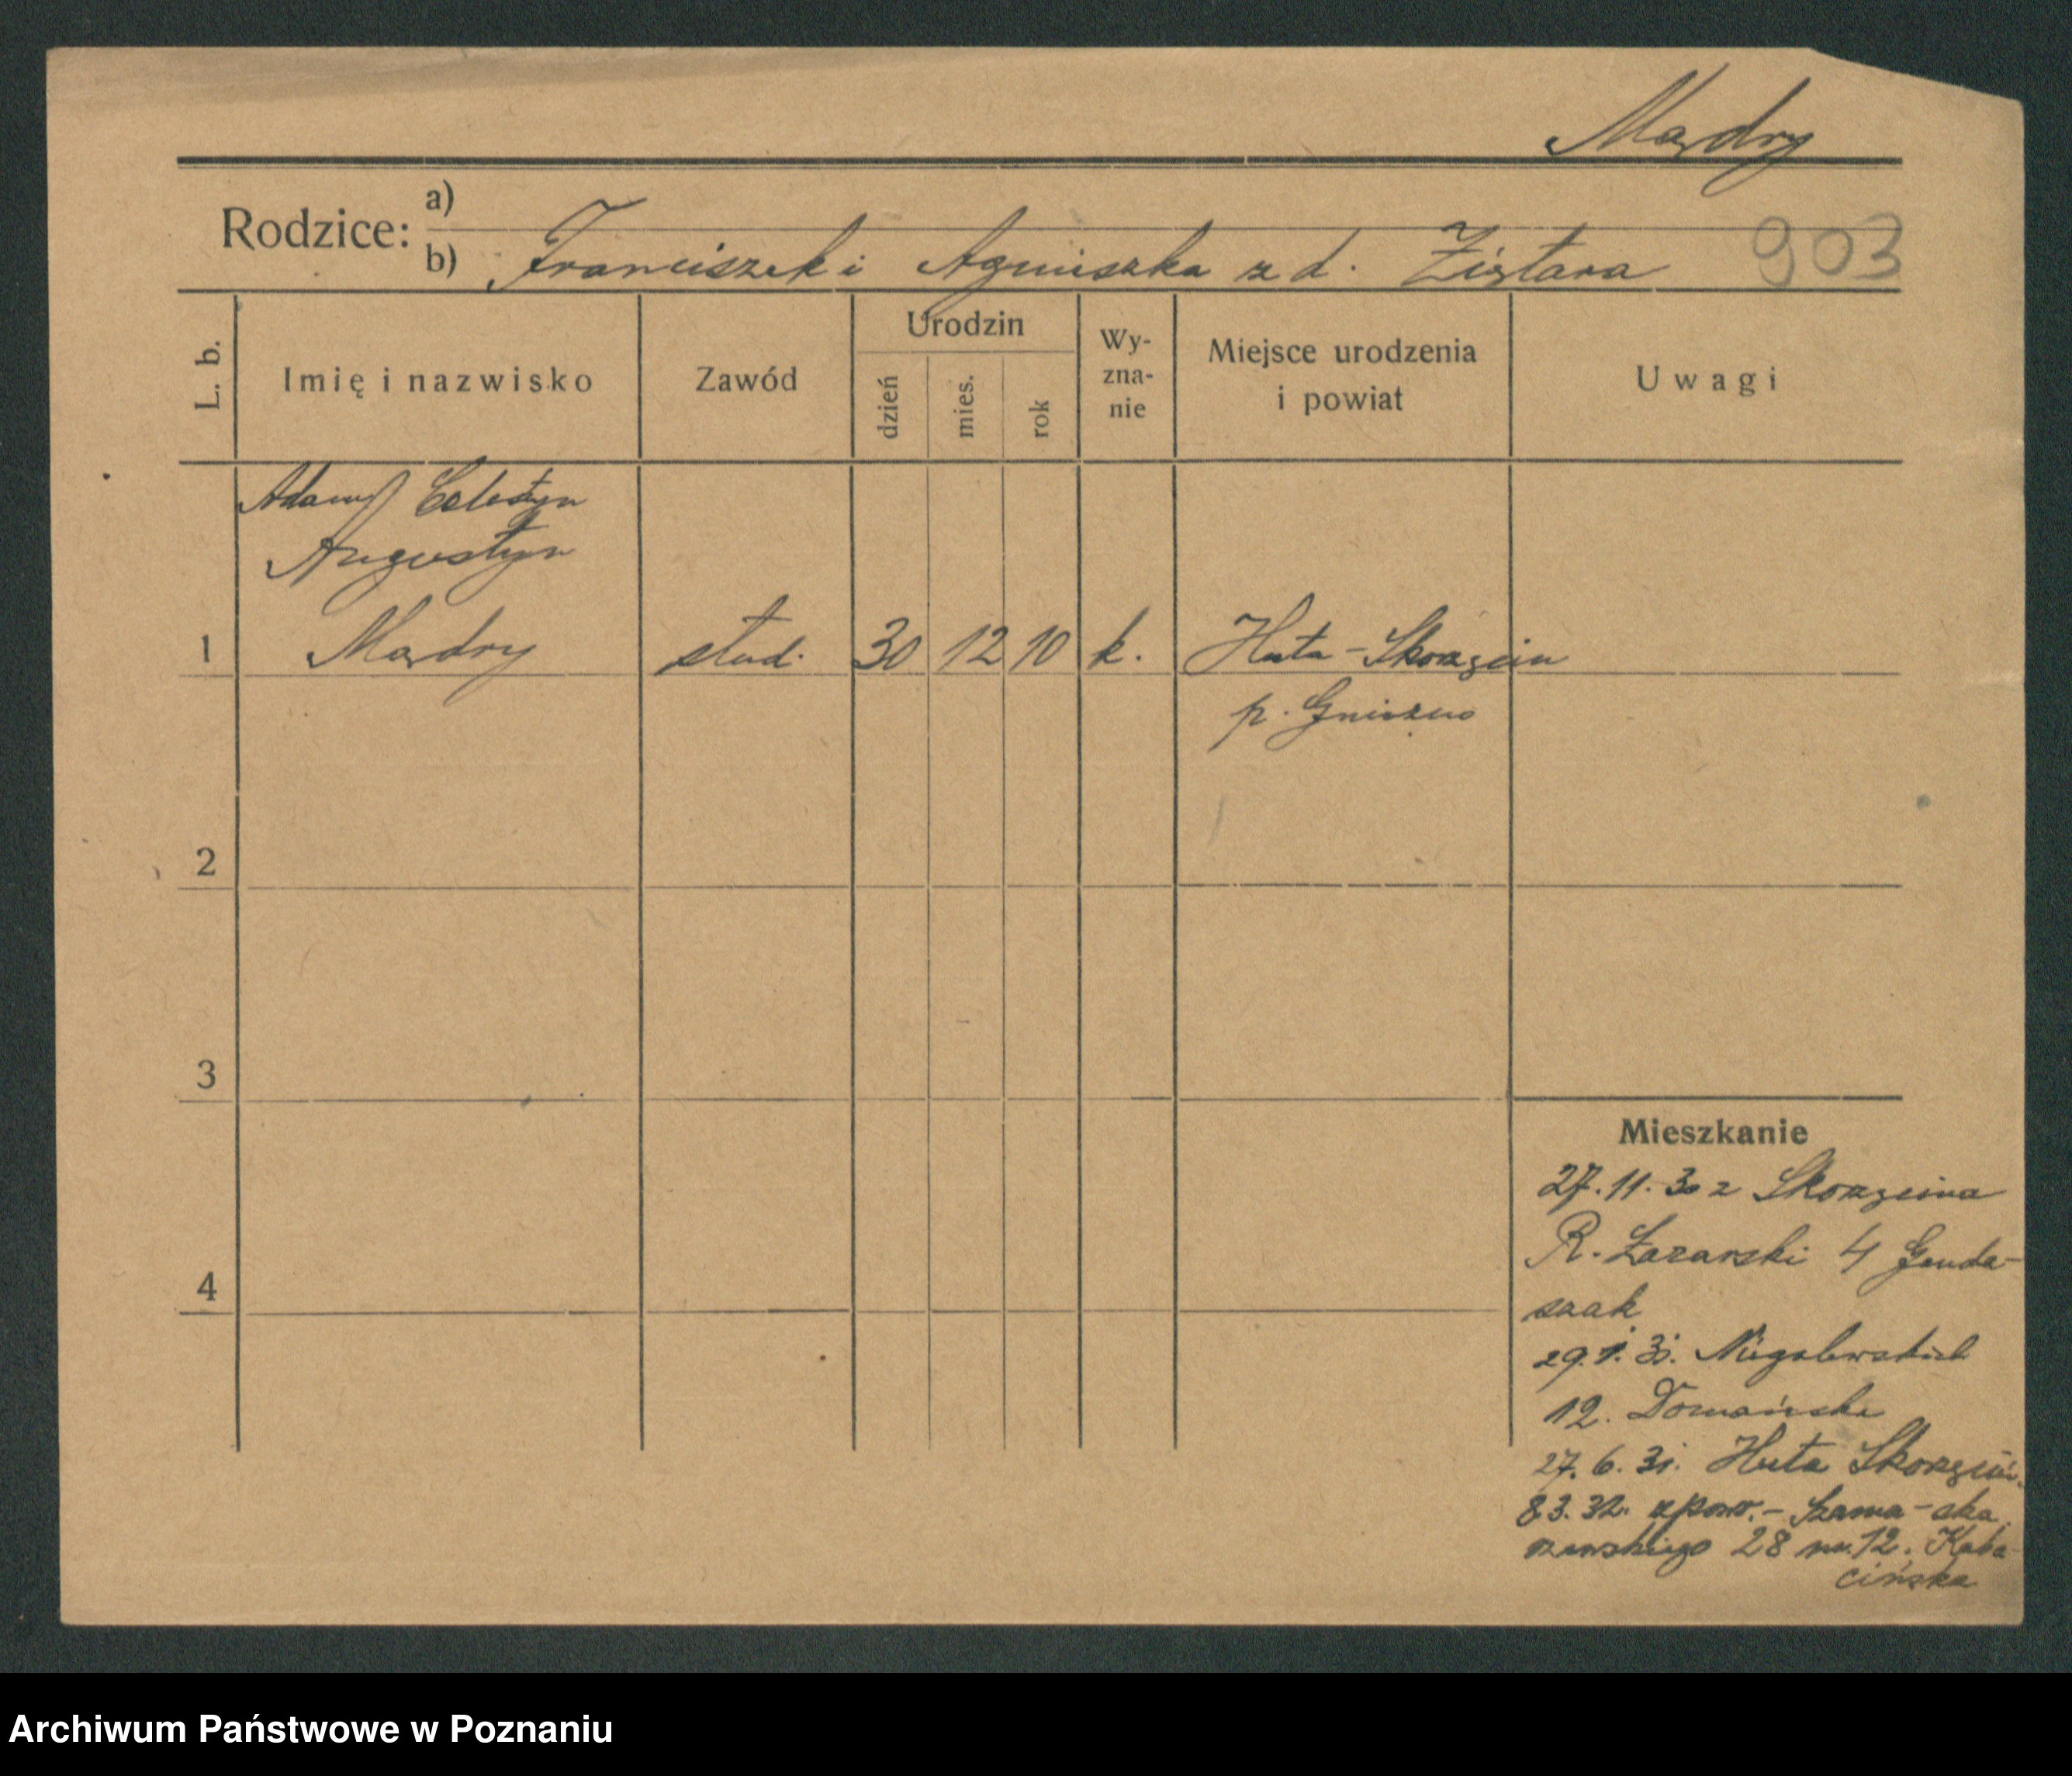 Mądry
Rodzice: a)
b) Franciszek i Agnieszka z d. Ziętara 903
L. b. Imię i nazwisko Zawód Urodzin dzień mies. rok Wy-zna-nie Miejsce urodzenia i powiat Uwagi
Adam Celestyn
Augustyn
1 Mądry stud. 30 12 10 k. Huta-Skorzęcin
p. Gniezno
2
3
Mieszkanie
27.11.30 z Skorzęcina
R. Łazarski 4 Genda-
4
szak
29.1.31. Niegolewskich
12. Domańska
27.6.31. Huta Skorzęciń.
8.3.32. zpow. - Szama-
rzewskiego 28 m. 12. Kaba-
cińska
Archiwum Państwowe w Poznaniu